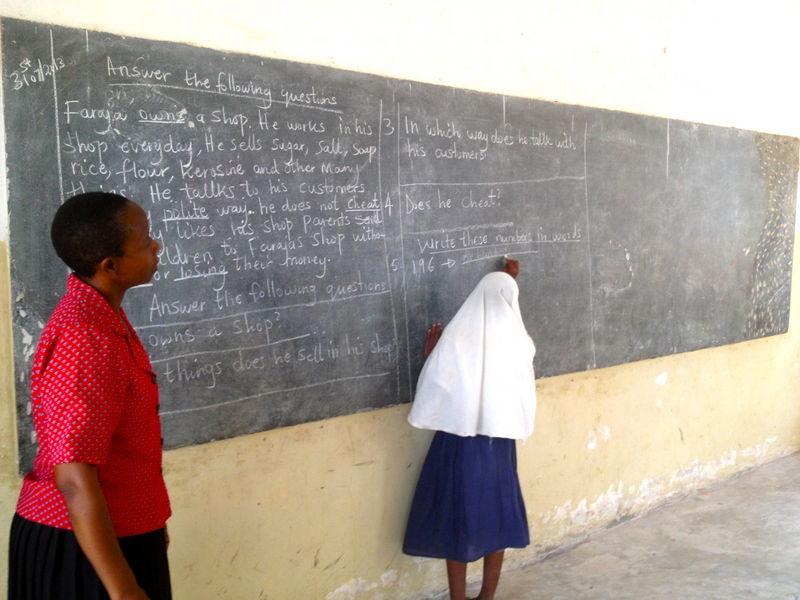 31st/07/2013
Answer the following questions
Faraja owns a shop. He works in his
shop everyday, He sells sugar, Salt, Soap
rice, flour, Kerosine and other Many
He tallks to his customers
polite way. he does not cheat
likes his shop parents Said
to Faraja's shop witho-
or losing their money.
Answer the following questions
owns a shop?
things does he sell in his shop
3 In which way does he talk with
his customers
4 Does he cheat?
Write these numbers in words
5 196 →